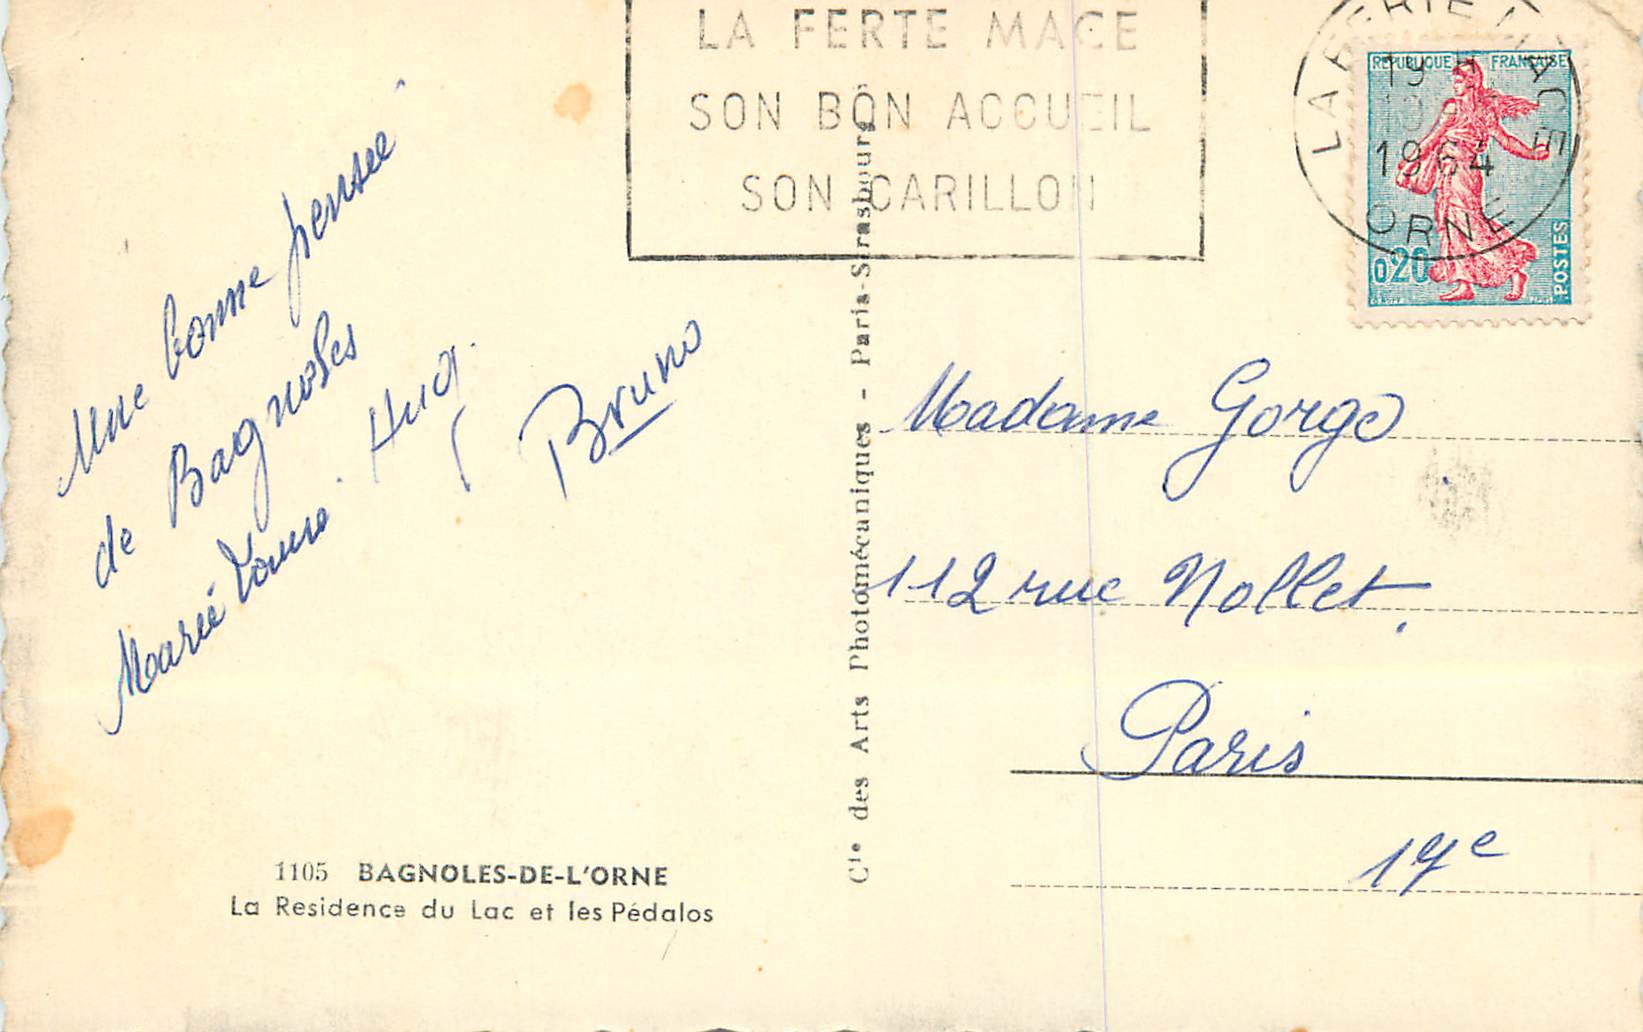 LA FERTE MACE
SON BON ACCUEIL
SON CARILLON
LA FERTE MACE
19 H
1964
ORNE
REPUBLIQUE FRANCAISE
0,20
POSTES
Une bonne pensée
de Bagnoles
Marie Louise. Hug.
Bruno
Cie des Arts Photomécaniques - Paris-Strasbourg
Madame Gorge
112 rue Nollet.
Paris
17e
1105 BAGNOLES-DE-L'ORNE
La Residence du Lac et les Pédalos